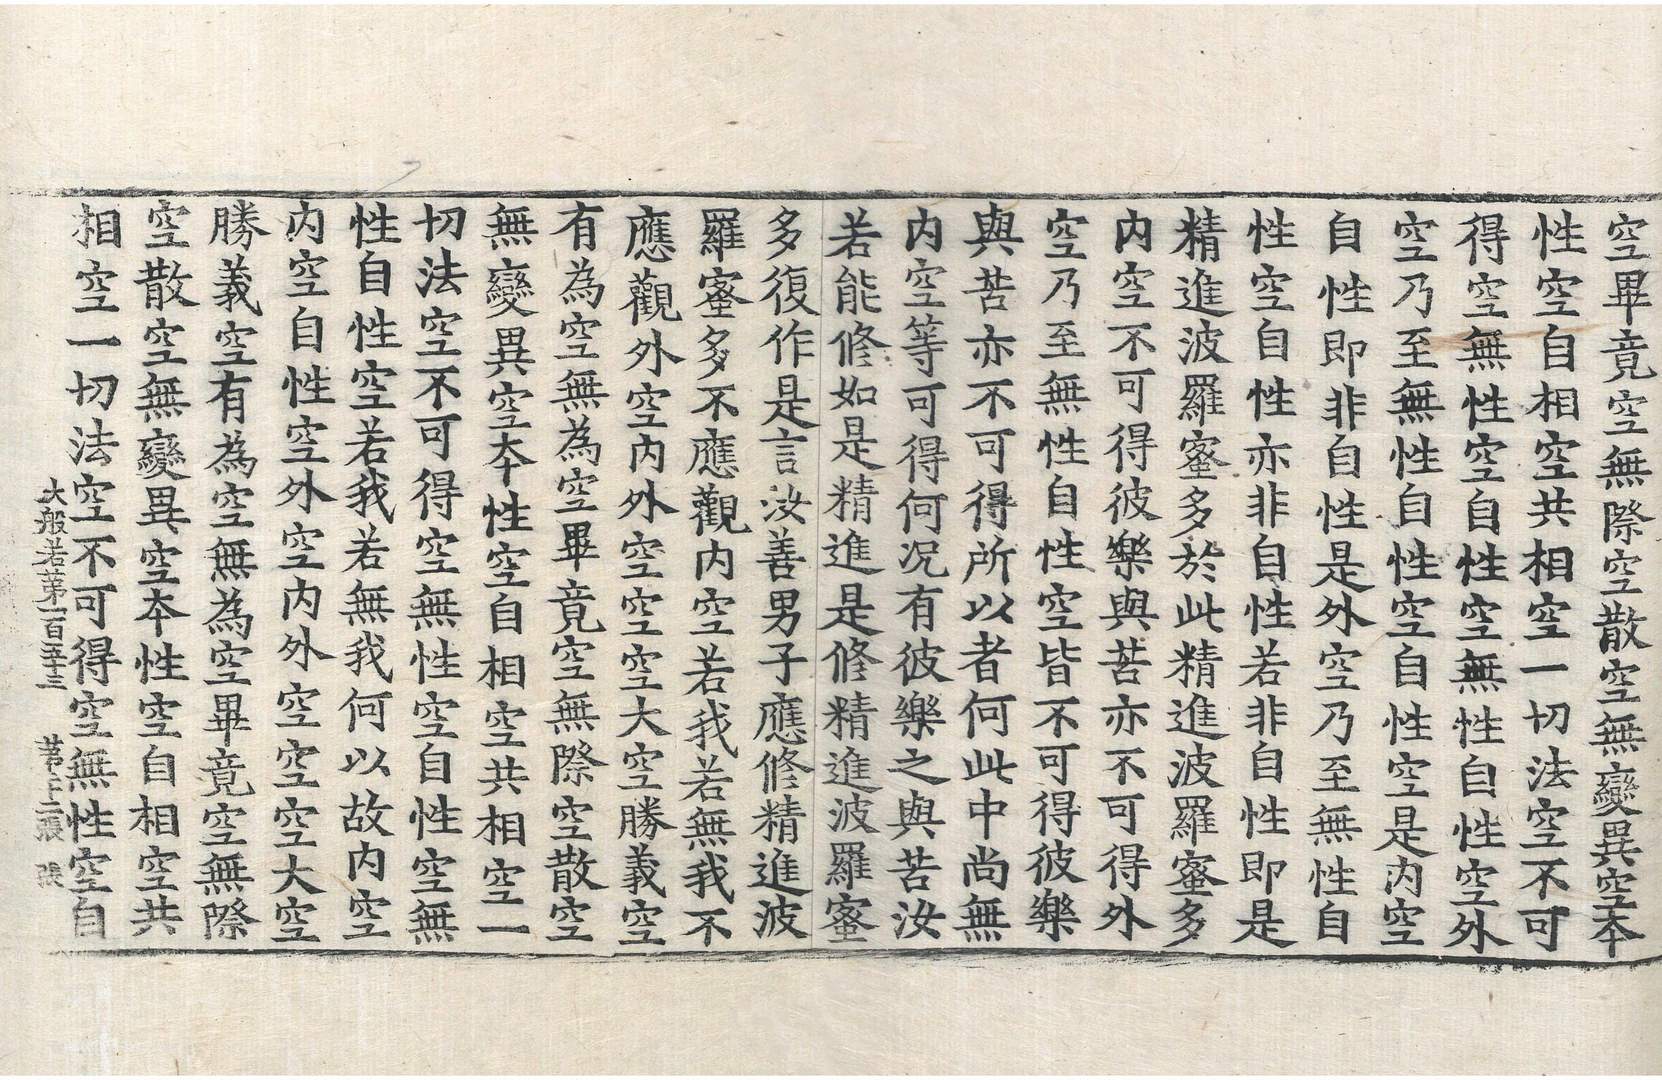 空畢竟空無際空散空無變異空夲
性空自相空共相空一切法空不可
得空無性空自性空無性自性空外
空乃至無性自性空自性空是内空
自性即非自性是外空乃至無性自
性空自性亦非自性若非自性即是
精進波羅蜜多於此精進波羅蜜多
内空不可得彼樂與苦亦不可得外
空乃至無性自性空皆不可得彼樂
與苦亦不可得所以者何此中尚無
内空等可得何况有彼樂之與苦汝
若能修如是精進是修精進波羅蜜
多復作是言汝善男子應修精進波
羅蜜多不應觀内空若我若無我不
應觀外空内外空空空大空勝義空
有為空無為空畢竟空無際空散空
無變異空夲性空自相空共相空一
切法空不可得空無性空自性空無
性自性空若我若無我何以故内空
内空自性空外空内外空空空大空
勝義空有為空無為空畢竟空無際
空散空無變異空夲性空自相空共
相空一切法空不可得空無性空自
大般若苐一百五十三 苐十二張 張